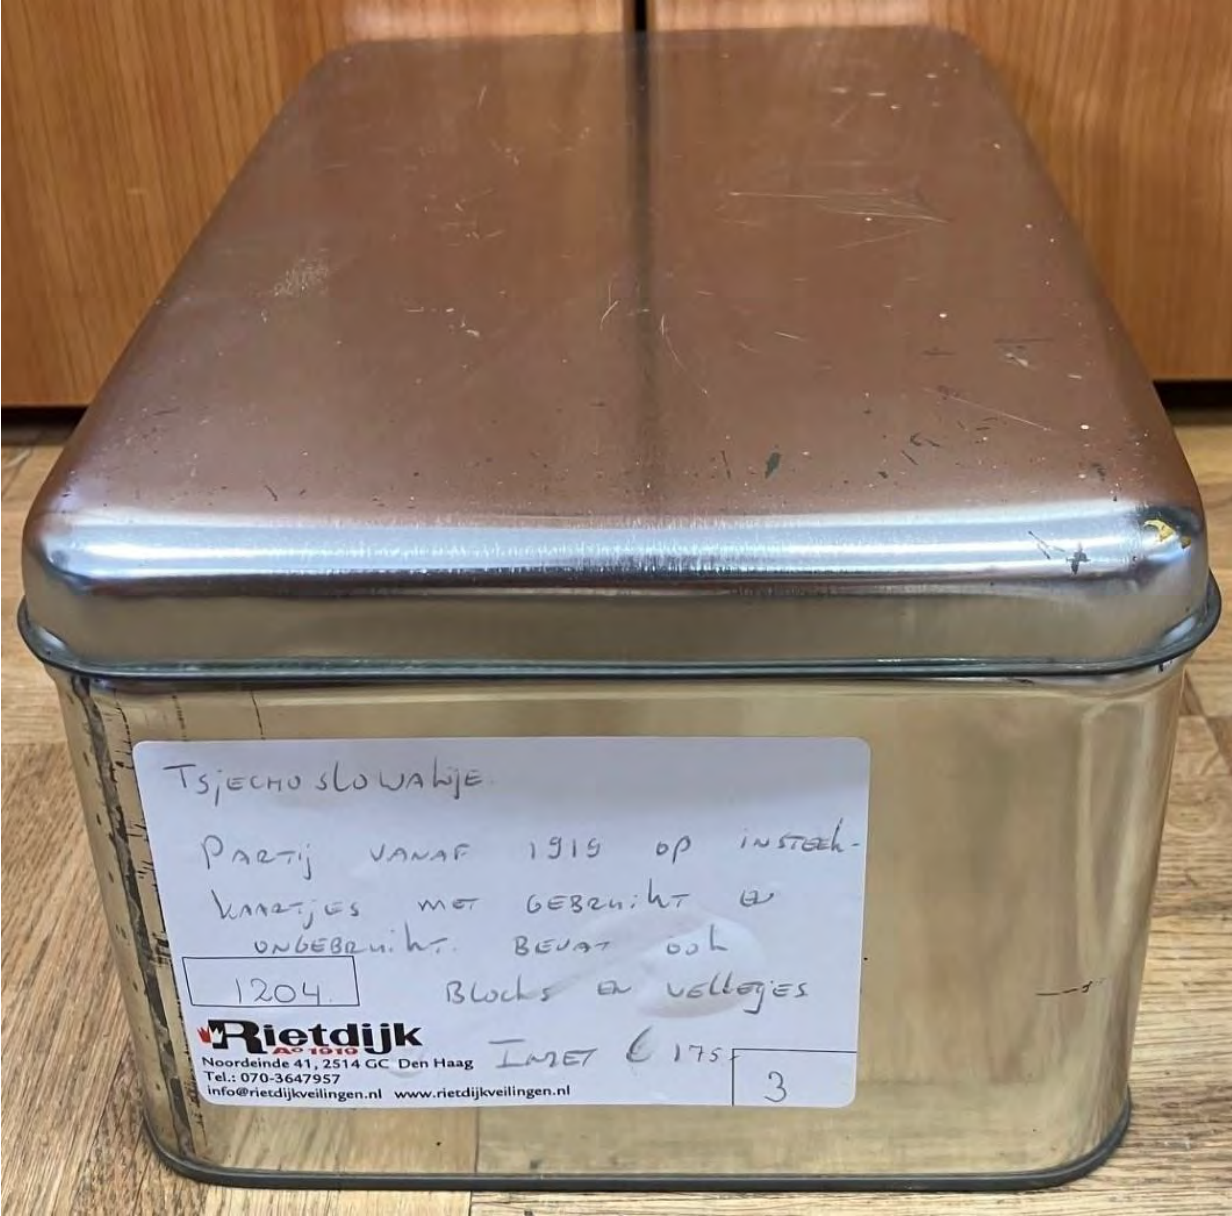 Tsjechoslowakije
Partij vanaf 1919 op insteek-
kaartjes met gebruikt en
ongebruikt. Bevat ook
1204 Blocks en velletjes
Rietdijk
Ao 1919
Inzet € 175,-
Noordeinde 41, 2514 GC Den Haag
Tel.: 070-3647957
info@rietdijkveilingen.nl www.rietdijkveilingen.nl
3